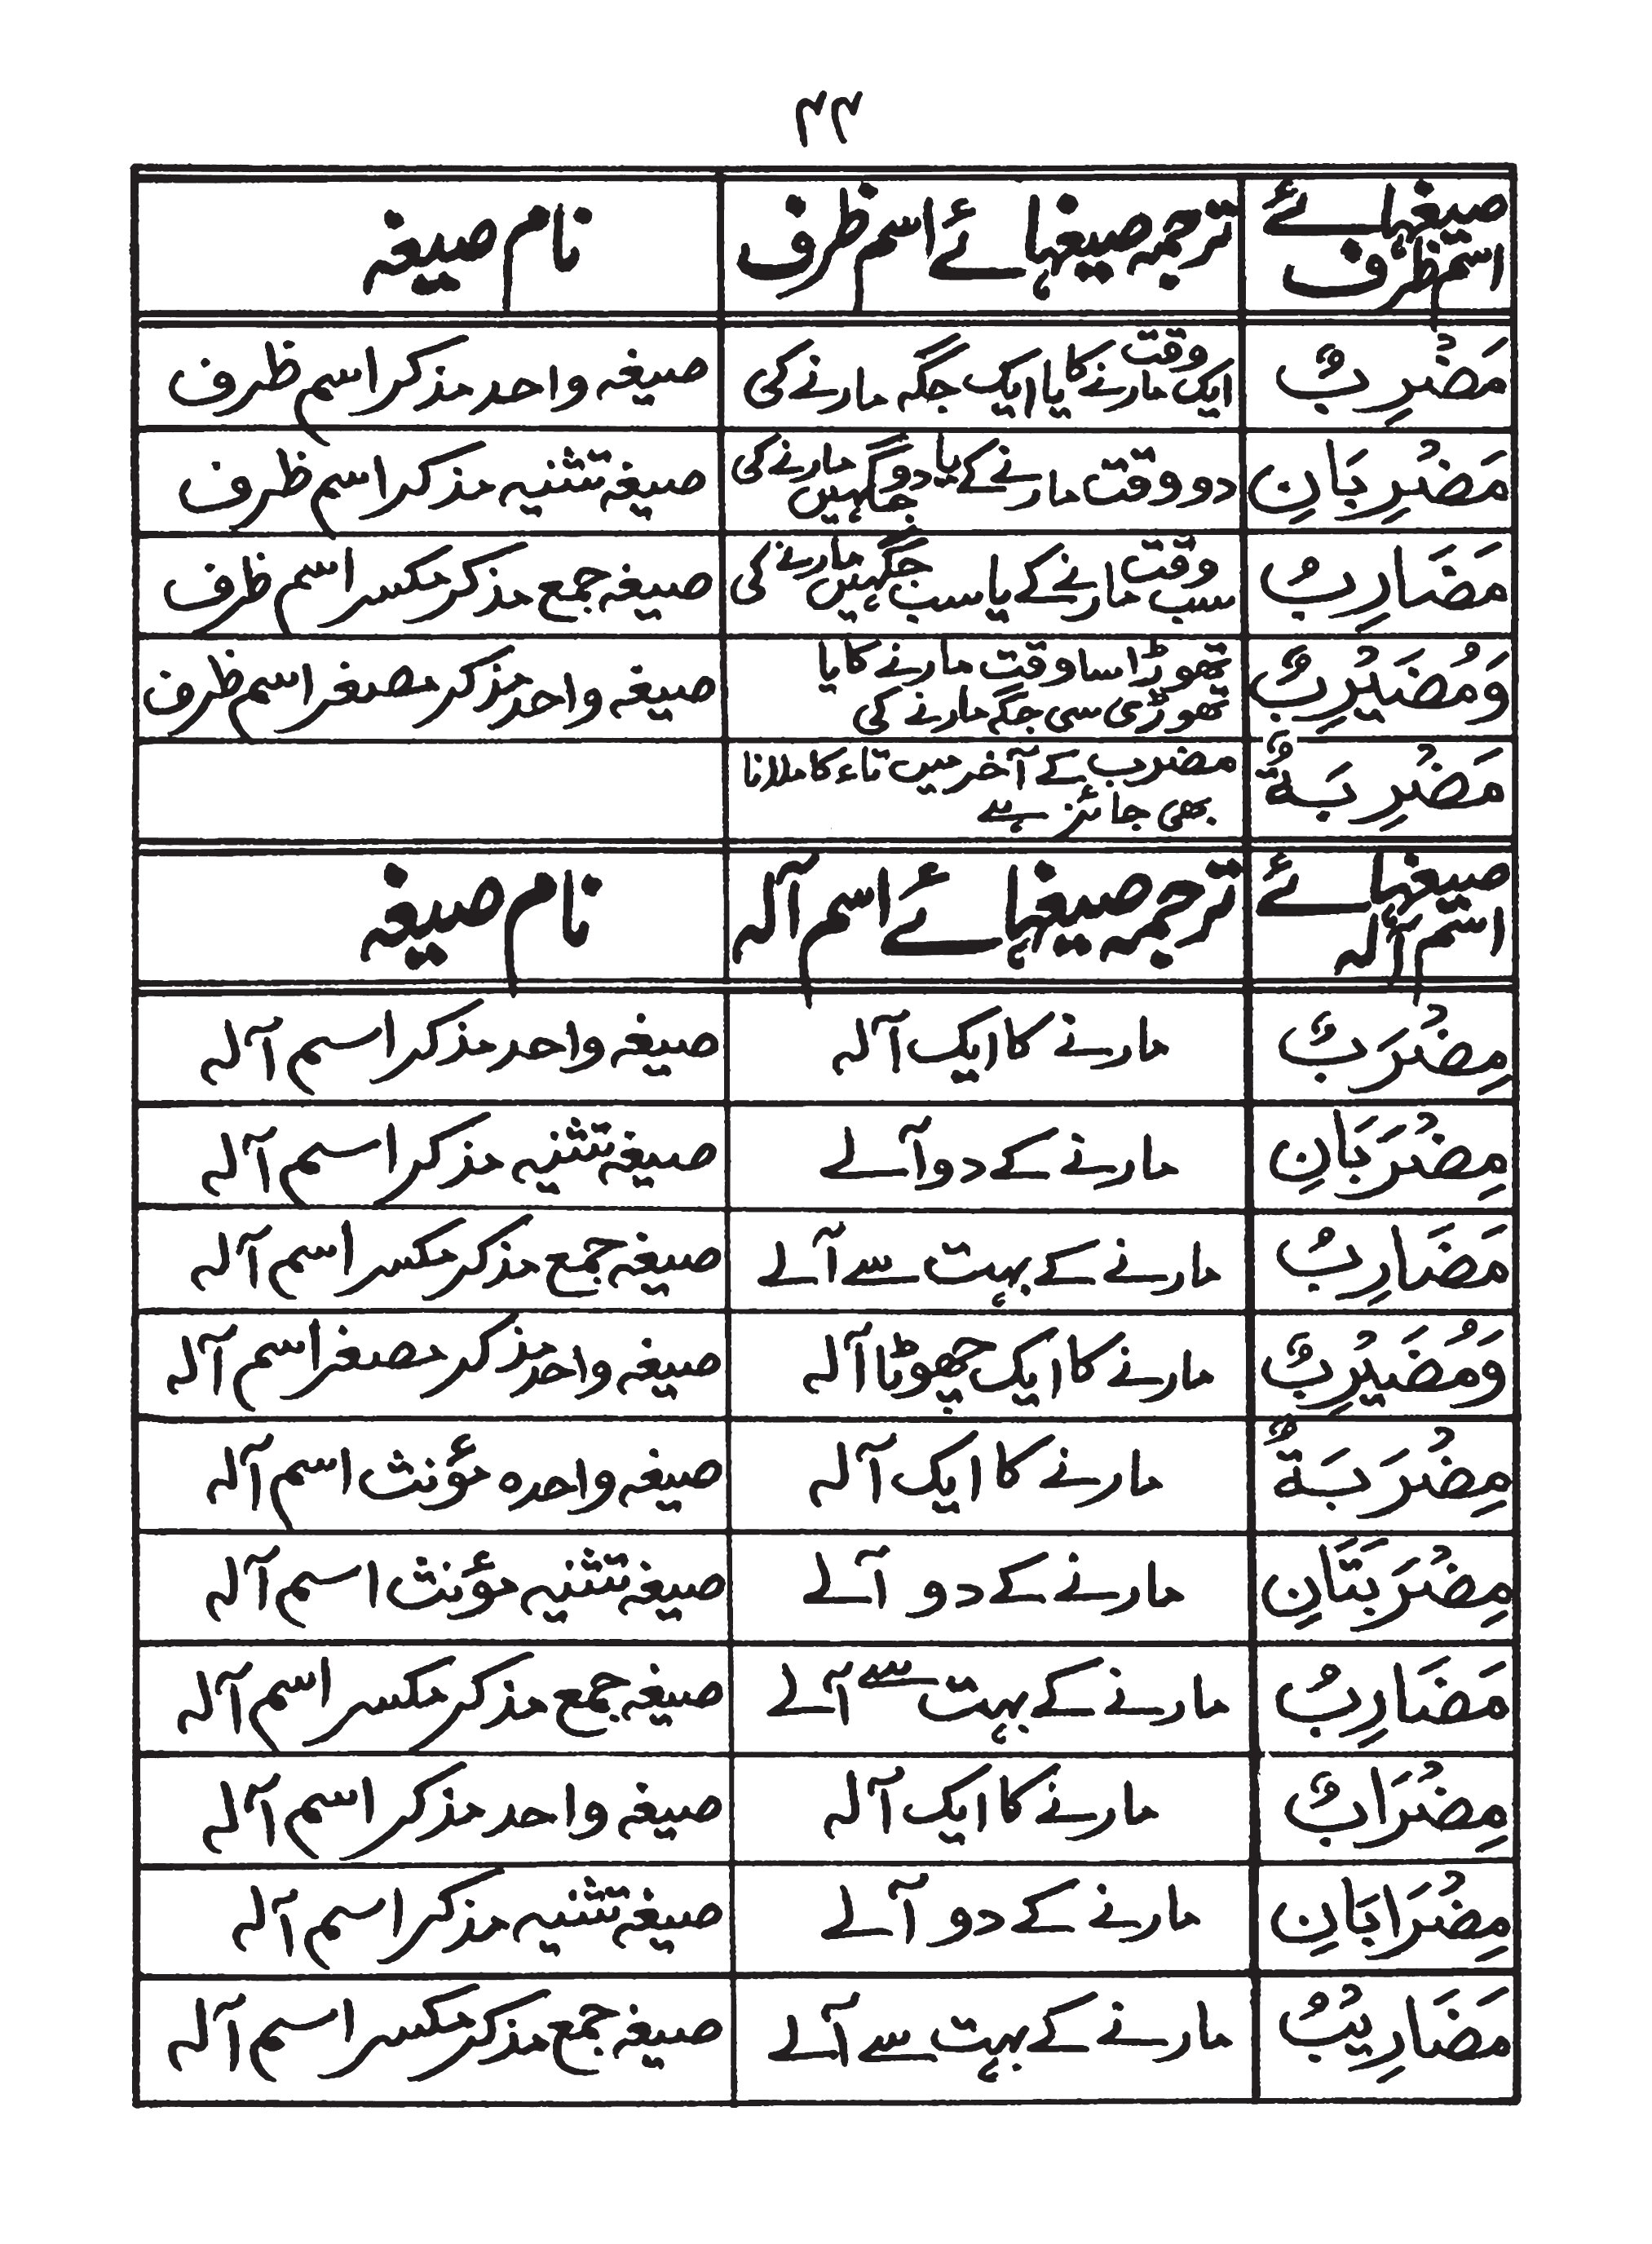 ۴۴
صیغہائے اسم ظرف ترجمہ صیغہائے اسم ظرف نام صیغہ
مَضْرِبٌ ایک وقت مارنے کا یا ایک جگہ مارنے کی صیغہ واحد مذکر اسم ظرف
مَضْرِبَانِ دو وقت مارنے کے یا دو جگہیں مارنے کی صیغہ تثنیہ مذکر اسم ظرف
مَضَارِبُ سب وقت مارنے کے یا سب جگہیں مارنے کی صیغہ جمع مذکر مکسر اسم ظرف
وَمُضَيْرِبٌ تھوڑا سا وقت مارنے کا یا صیغہ واحد مذکر مصغر اسم ظرف
تھوڑی سی جگہ مارنے کی
مَضْرِبَةٌ مضرب کے آخر میں تاء کا ملانا
بھی جائز ہے
صیغہائے اسم آلہ ترجمہ صیغہائے اسم آلہ نام صیغہ
مِضْرَبٌ مارنے کا ایک آلہ صیغہ واحد مذکر اسم آلہ
مِضْرَبَانِ مارنے کے دو آلے صیغہ تثنیہ مذکر اسم آلہ
مَضَارِبُ مارنے کے بہت سے آلے صیغہ جمع مذکر مکسر اسم آلہ
وَمُضَيْرِبٌ مارنے کا ایک چھوٹا آلہ صیغہ واحد مذکر مصغر اسم آلہ
مِضْرَبَةٌ مارنے کا ایک آلہ صیغہ واحدہ مؤنث اسم آلہ
مِضْرَبَتَانِ مارنے کے دو آلے صیغہ تثنیہ مؤنث اسم آلہ
مَضَارِبُ مارنے کے بہت سے آلے صیغہ جمع مذکر مکسر اسم آلہ
مِضْرَابٌ مارنے کا ایک آلہ صیغہ واحد مذکر اسم آلہ
مِضْرَابَانِ مارنے کے دو آلے صیغہ تثنیہ مذکر اسم آلہ
مَضَارِيْبُ مارنے کے بہت سے آلے صیغہ جمع مذکر مکسر اسم آلہ